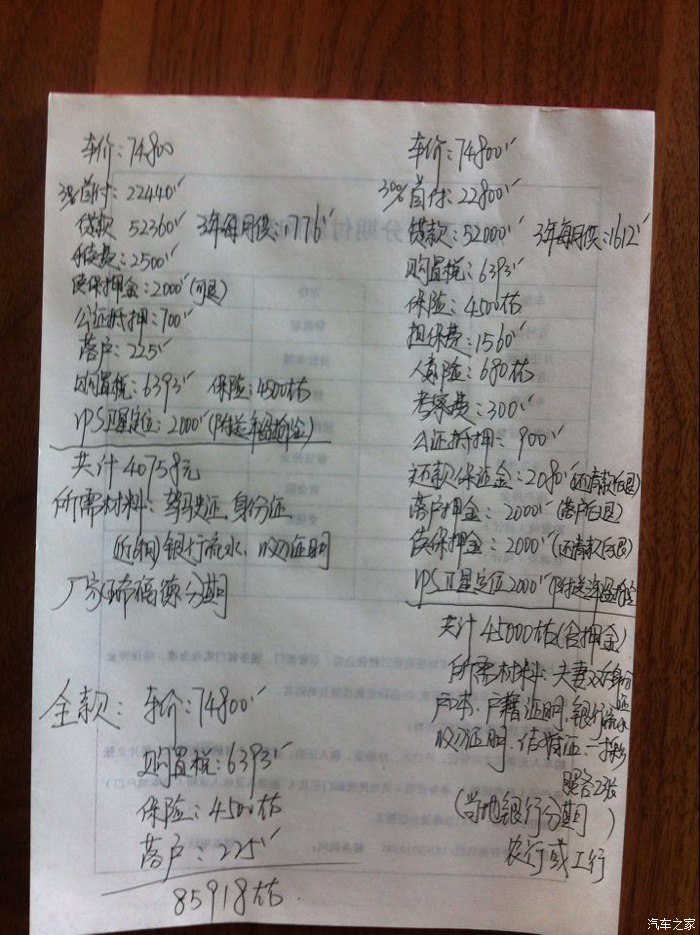 车价：74800
30%首付：22440
贷款 52360 3年每月供：1776
手续费：2500
续保押金：2000（可退）
公证抵押：700
落户：225
购置税：6393 保险：4500左右
GPS卫星定位：2000（附送车盗抢金）
共计 40758元
所需材料：驾驶证，身份证
银行流水，收入证明
厂家瑞福德分期
全款：车价：74800
购置税：6393
保险：4500左右
落户：225
85918左右
车价：74800
30%首付：22800
贷款：52000 3年每月供：1612
购置税：6393
保险：4500左右
担保费：1560
人寿险：680左右
考察费：300
公证抵押：900
还款保证金：2080（还清款后退）
落户押金：2000（落户后退）
续保押金：2000（还清款后退）
GPS卫星定位2000
共计45000左右（含押金）
所需材料：夫妻双方身份证
户本，户籍证明，银行流水
收入证明，结婚证，一寸彩
照各2张
（当地银行分期）
农行或工行
汽车之家